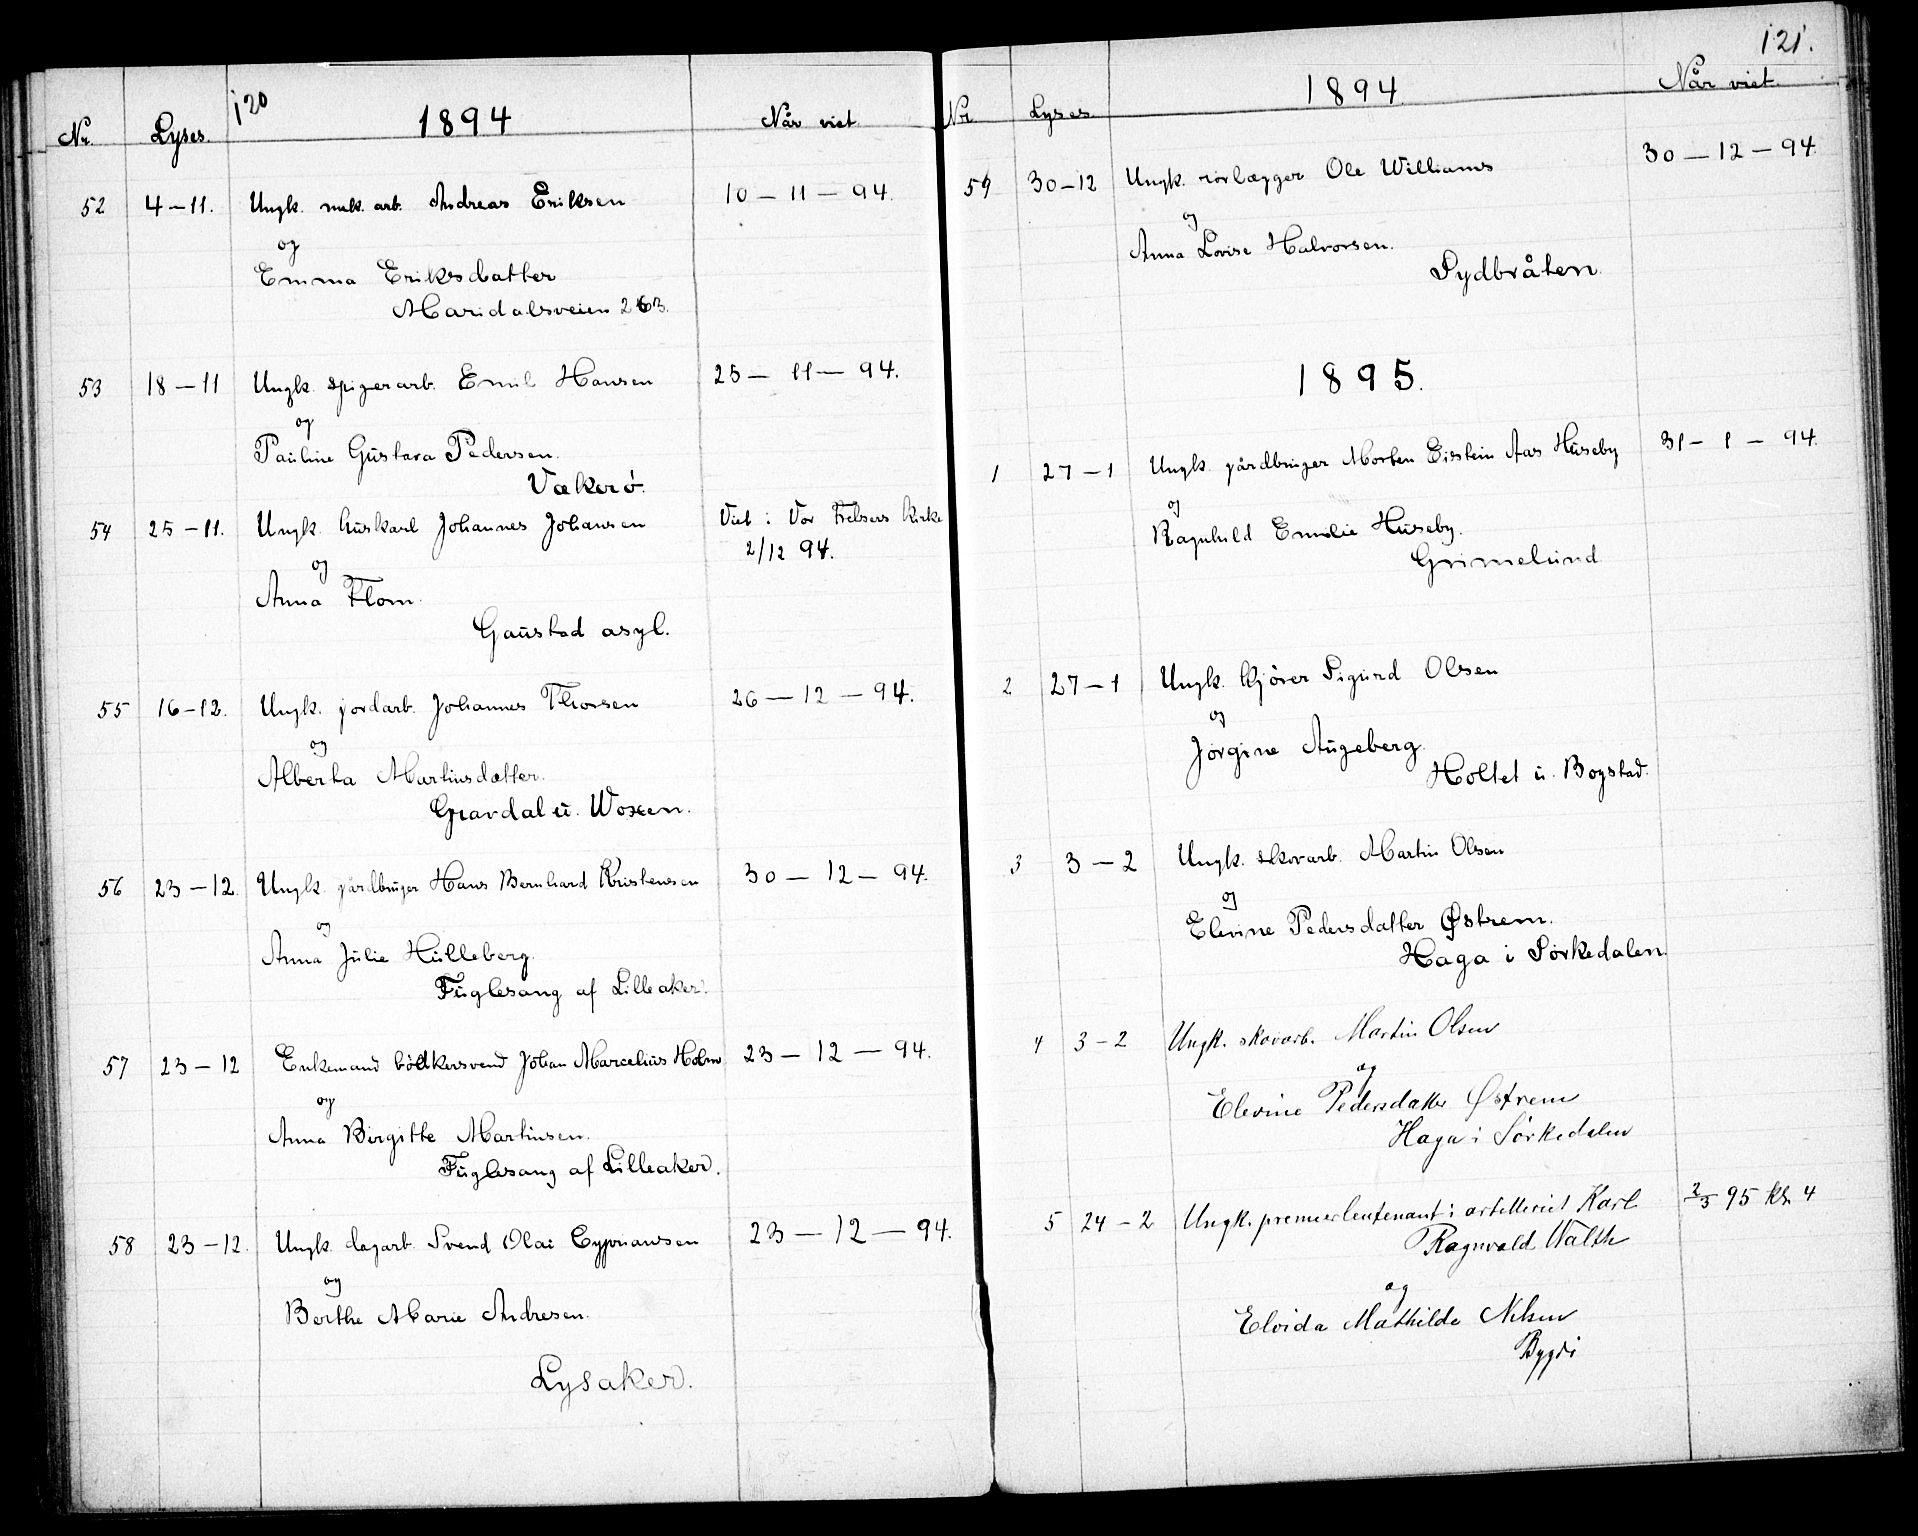 120
Nr. Lyses. 1894 Når viet
52 4-11. Ungk. mek. arb. Andreas Eriksen 10-11-94.
og
Emma Eriksdatter
Maridalsveien 263.
53 18-11 Ungk. spigerarb. Emil Hansen 25-11-94.
og
Pauline Gustava Pedersen.
Vækerö.
54 25-11. Ungk. huskarl Johannes Johansen Viet i Vor Frelsers Kirke
2/12 94.
og
Anna Flom.
Gaustad asyl.
55 16-12. Ungk. jordarb. Johannes Thorsen 26-12-94.
og
Alberta Martinsdatter.
u. Woxen.
56 23-12. Ungk. gårdbruger Hans Bernhard Kristensen 30-12-94.
og
Anna Julie Hulleberg.
Fuglesang af Lilleaker.
57 23-12 Enkemand bödkersvend Johan Marcelius Holm 23-12-94.
og
Anna Birgitte Martinsen.
Fuglesang af Lilleaker.
58 23-12. Ungk. dagarb. Svend Olai Cypriansen 23-12-94.
og
Berthe Marie Andresen.
Lysaker.
121.
Nr. Lyses. 1894 Når viet.
59 30-12 Ungk. rörlægger Ole Williams 30-12-94.
og
Anna Lovise Halvorsen.
Sydbråten.
1895.
1 27-1 Ungk. gårdbruger Morten Eistein Aas Huseby 31-1-94.
og
Ragnhild Emilie Huseby.
Grimelund
2 27-1 Ungk. kjörer Sigurd Olsen
og
Jörgine Augeberg.
Holtet u. Bogstad.
3 3-2 Ungk. skovarb. Martin Olsen
og
Elevine Pedersdatter Østrem.
Haga i Sörkedalen.
4 3-2 Ungk. skovarb. Martin Olsen
og
Elevine Pedersdatter Østrem
Haga i Sörkedalen
5 24-2 Ungk. premierleutenant i artilleriet Karl 2/3 95 kl. 4
Ragnvald Walth
og
Elvida Mathilde Nilsen
Bygdö